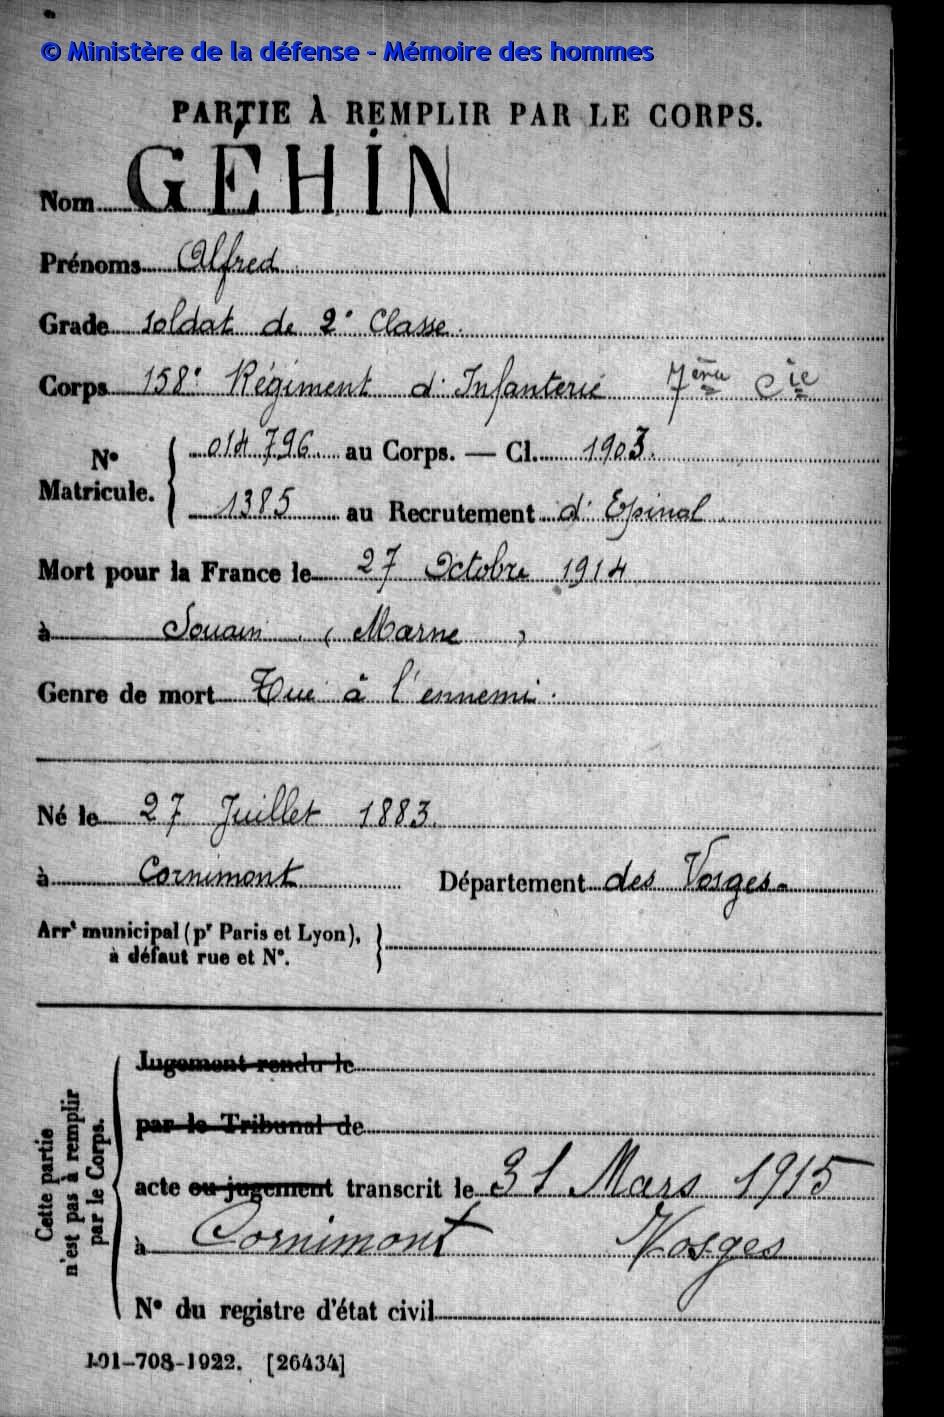 © Ministère de la défense - Mémoire des hommes
PARTIE À REMPLIR PAR LE CORPS.
Nom GÉHIN
Prénoms Alfred
Grade soldat de 2e Classe.
Corps 158e Régiment d'Infanterie 7ème Cie
N° Matricule. 014796 au Corps. — Cl. 1903.
1385 au Recrutement d'Epinal
Mort pour la France le 27 Octobre 1914
à Souain (Marne)
Genre de mort Tué à l'ennemi.
Né le 27 Juillet 1883.
à Cornimont Département des Vosges.
Arrt municipal (pr Paris et Lyon),
à défaut rue et N°.
Cette partie
n'est pas à remplir
par le Corps.
Jugement rendu le
par le Tribunal de
acte ou jugement transcrit le 31 Mars 1915
à Cornimont Vosges
N° du registre d'état civil
101-708-1922. [26434]